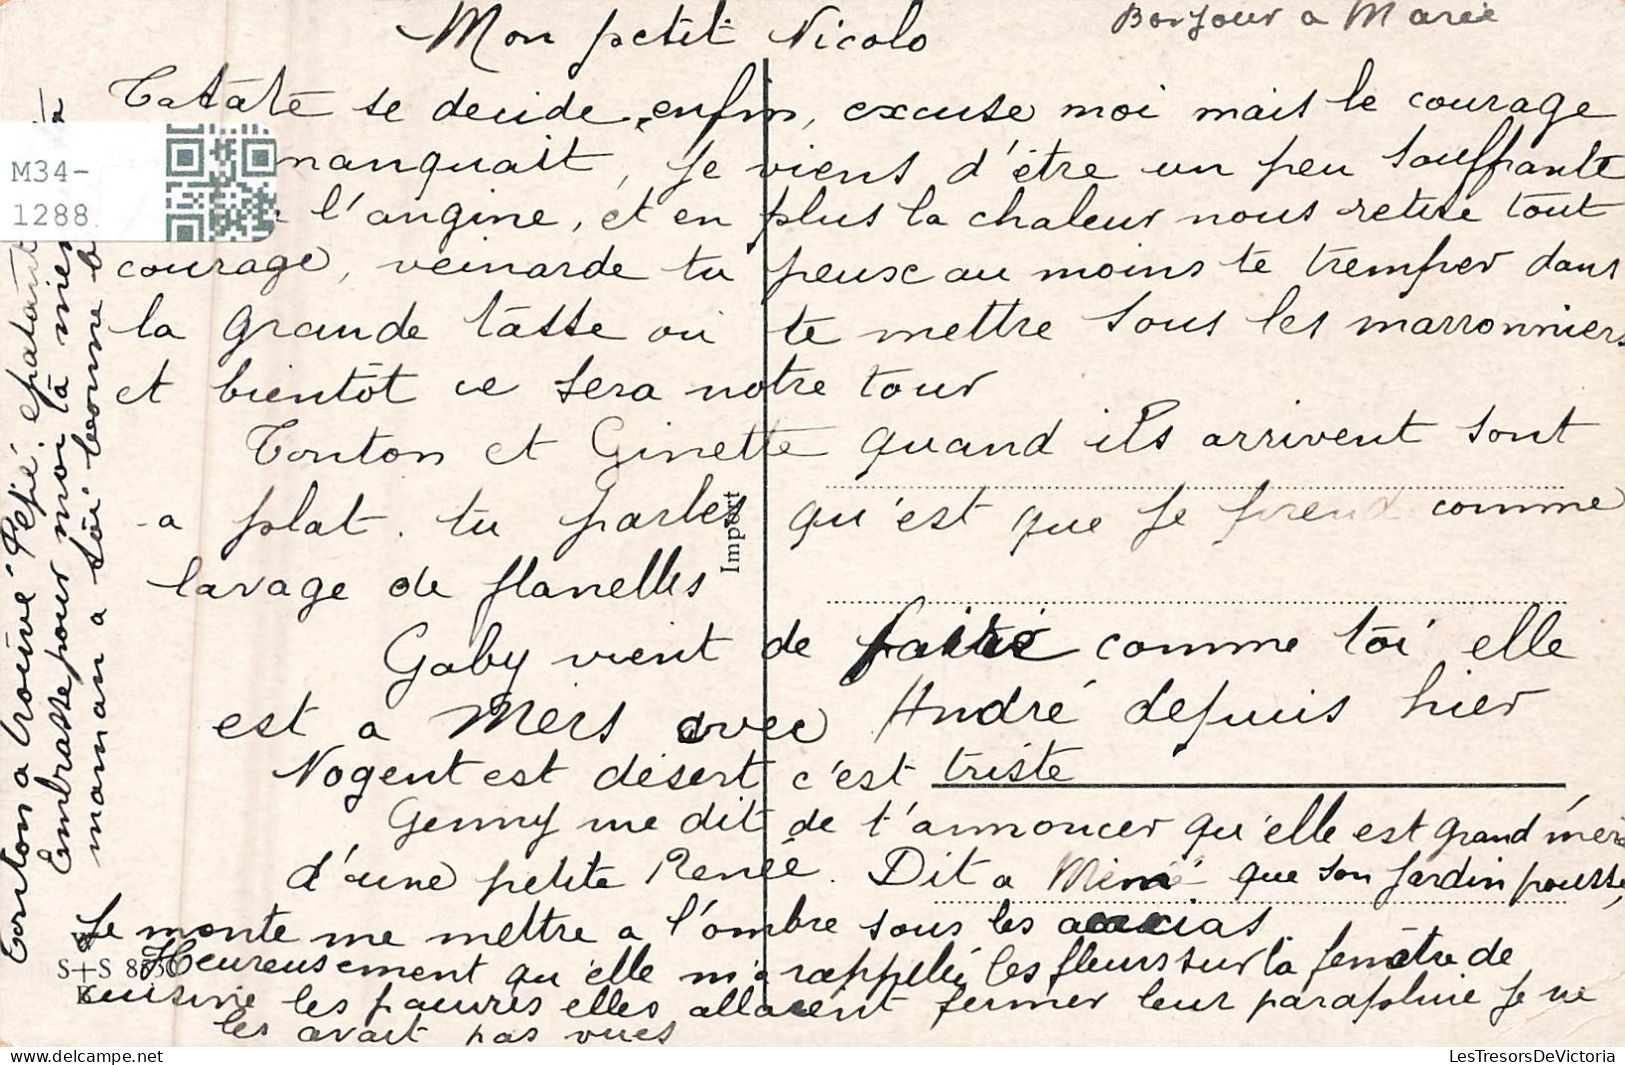 Bonjour a Marie
Mon petit Nicolo
Tatate se decide, enfin, excuse moi mais le courage
manquait, je viens d'être un peu souffrante
l'angine, et en plus la chaleur nous retire tout
courage, veinarde tu peux au moins te tremper dans
la grande tasse ou te mettre sous les marronniers
et bientôt ce sera notre tour
Tonton et Ginette quand ils arrivent sont
a plat. tu parles qu'est que je prend comme
lavage de flanelles
Gaby vient de faire comme toi elle
est a Mers avec André depuis hier
Nogent est désert c'est triste
Genny me dit de t'annoncer qu'elle est grand mère
d'une petite Renée. Dit a Mimi que son jardin pousse,
Je monte me mettre a l'ombre sous les acacias
Heureusement qu'elle m'a rappelé les fleurs sur la fenêtre de
cuisine les pauvres elles allaient fermer leur parapluie je ne
les avait pas vues
Tonton a trouvé Pépé épatant
Embrasse pour moi ta
maman a toi bonne
M34-
1288
Import
S+S 8
LesTresorsDeVictoria